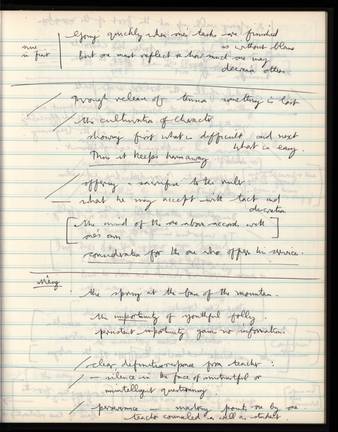 going quickly when one's tasks are finished
nine in first
is without blame
but one must reflect on how much one may
decrease others.
through release of tension something is lost
the cultivation of character
shows first what is difficult and next
what is easy.
Thus it keeps harm away
offering a sacrifice to the ruler.
what he may accept with tact and
decoration
the mind of the one above accords with
one's own
consideration for the one who offers his service.
Mêng
the spring at the base of the mountain.
the importunity of youthful folly.
persistent importunity gains no information.
clear definite response from teacher:
– silence in the face of mistrustful or
unintelligent questioning
perseverance – mastering points one by one
teacher counseled as well as student